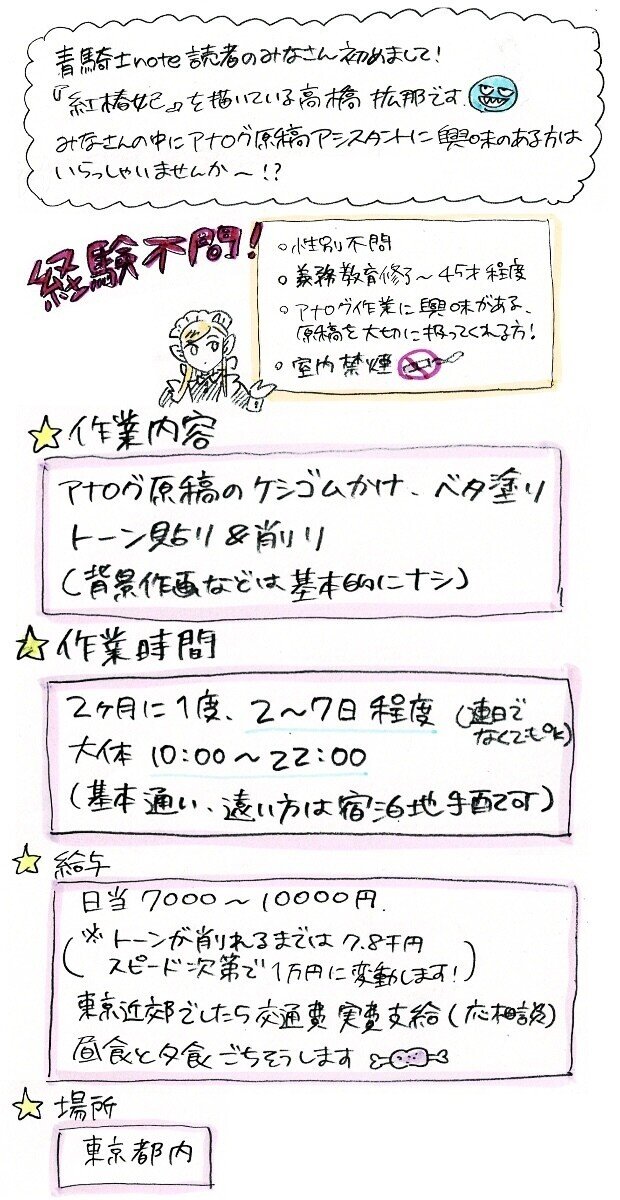 青騎士note読者のみなさん初めまして!
『紅椿妃』を描いている高橋拡那です。
みなさんの中にアナログ原稿アシスタントに興味のある方は
いらっしゃいませんか〜!?
経験不問!
○性別不問
○義務教育修了〜45才程度
○アナログ作業に興味がある、
原稿を大切に扱ってくれる方!
○室内禁煙
☆作業内容
アナログ原稿のケシゴムかけ、ベタ塗り
トーン貼り&削り
(背景作画などは基本的にナシ)
☆作業時間
2ヶ月に1度、2〜7日程度(連日でなくてもOK)
大体 10:00〜22:00
(基本通い、遠い方は宿泊地手配です)
☆給与
日当7000〜10000円.
(※トーンが削れるまでは7.8千円
スピード次第で1万円に変動します!)
東京近郊でしたら交通費実費支給(応相談)
昼食と夕食ごちそうします
☆場所
東京都内